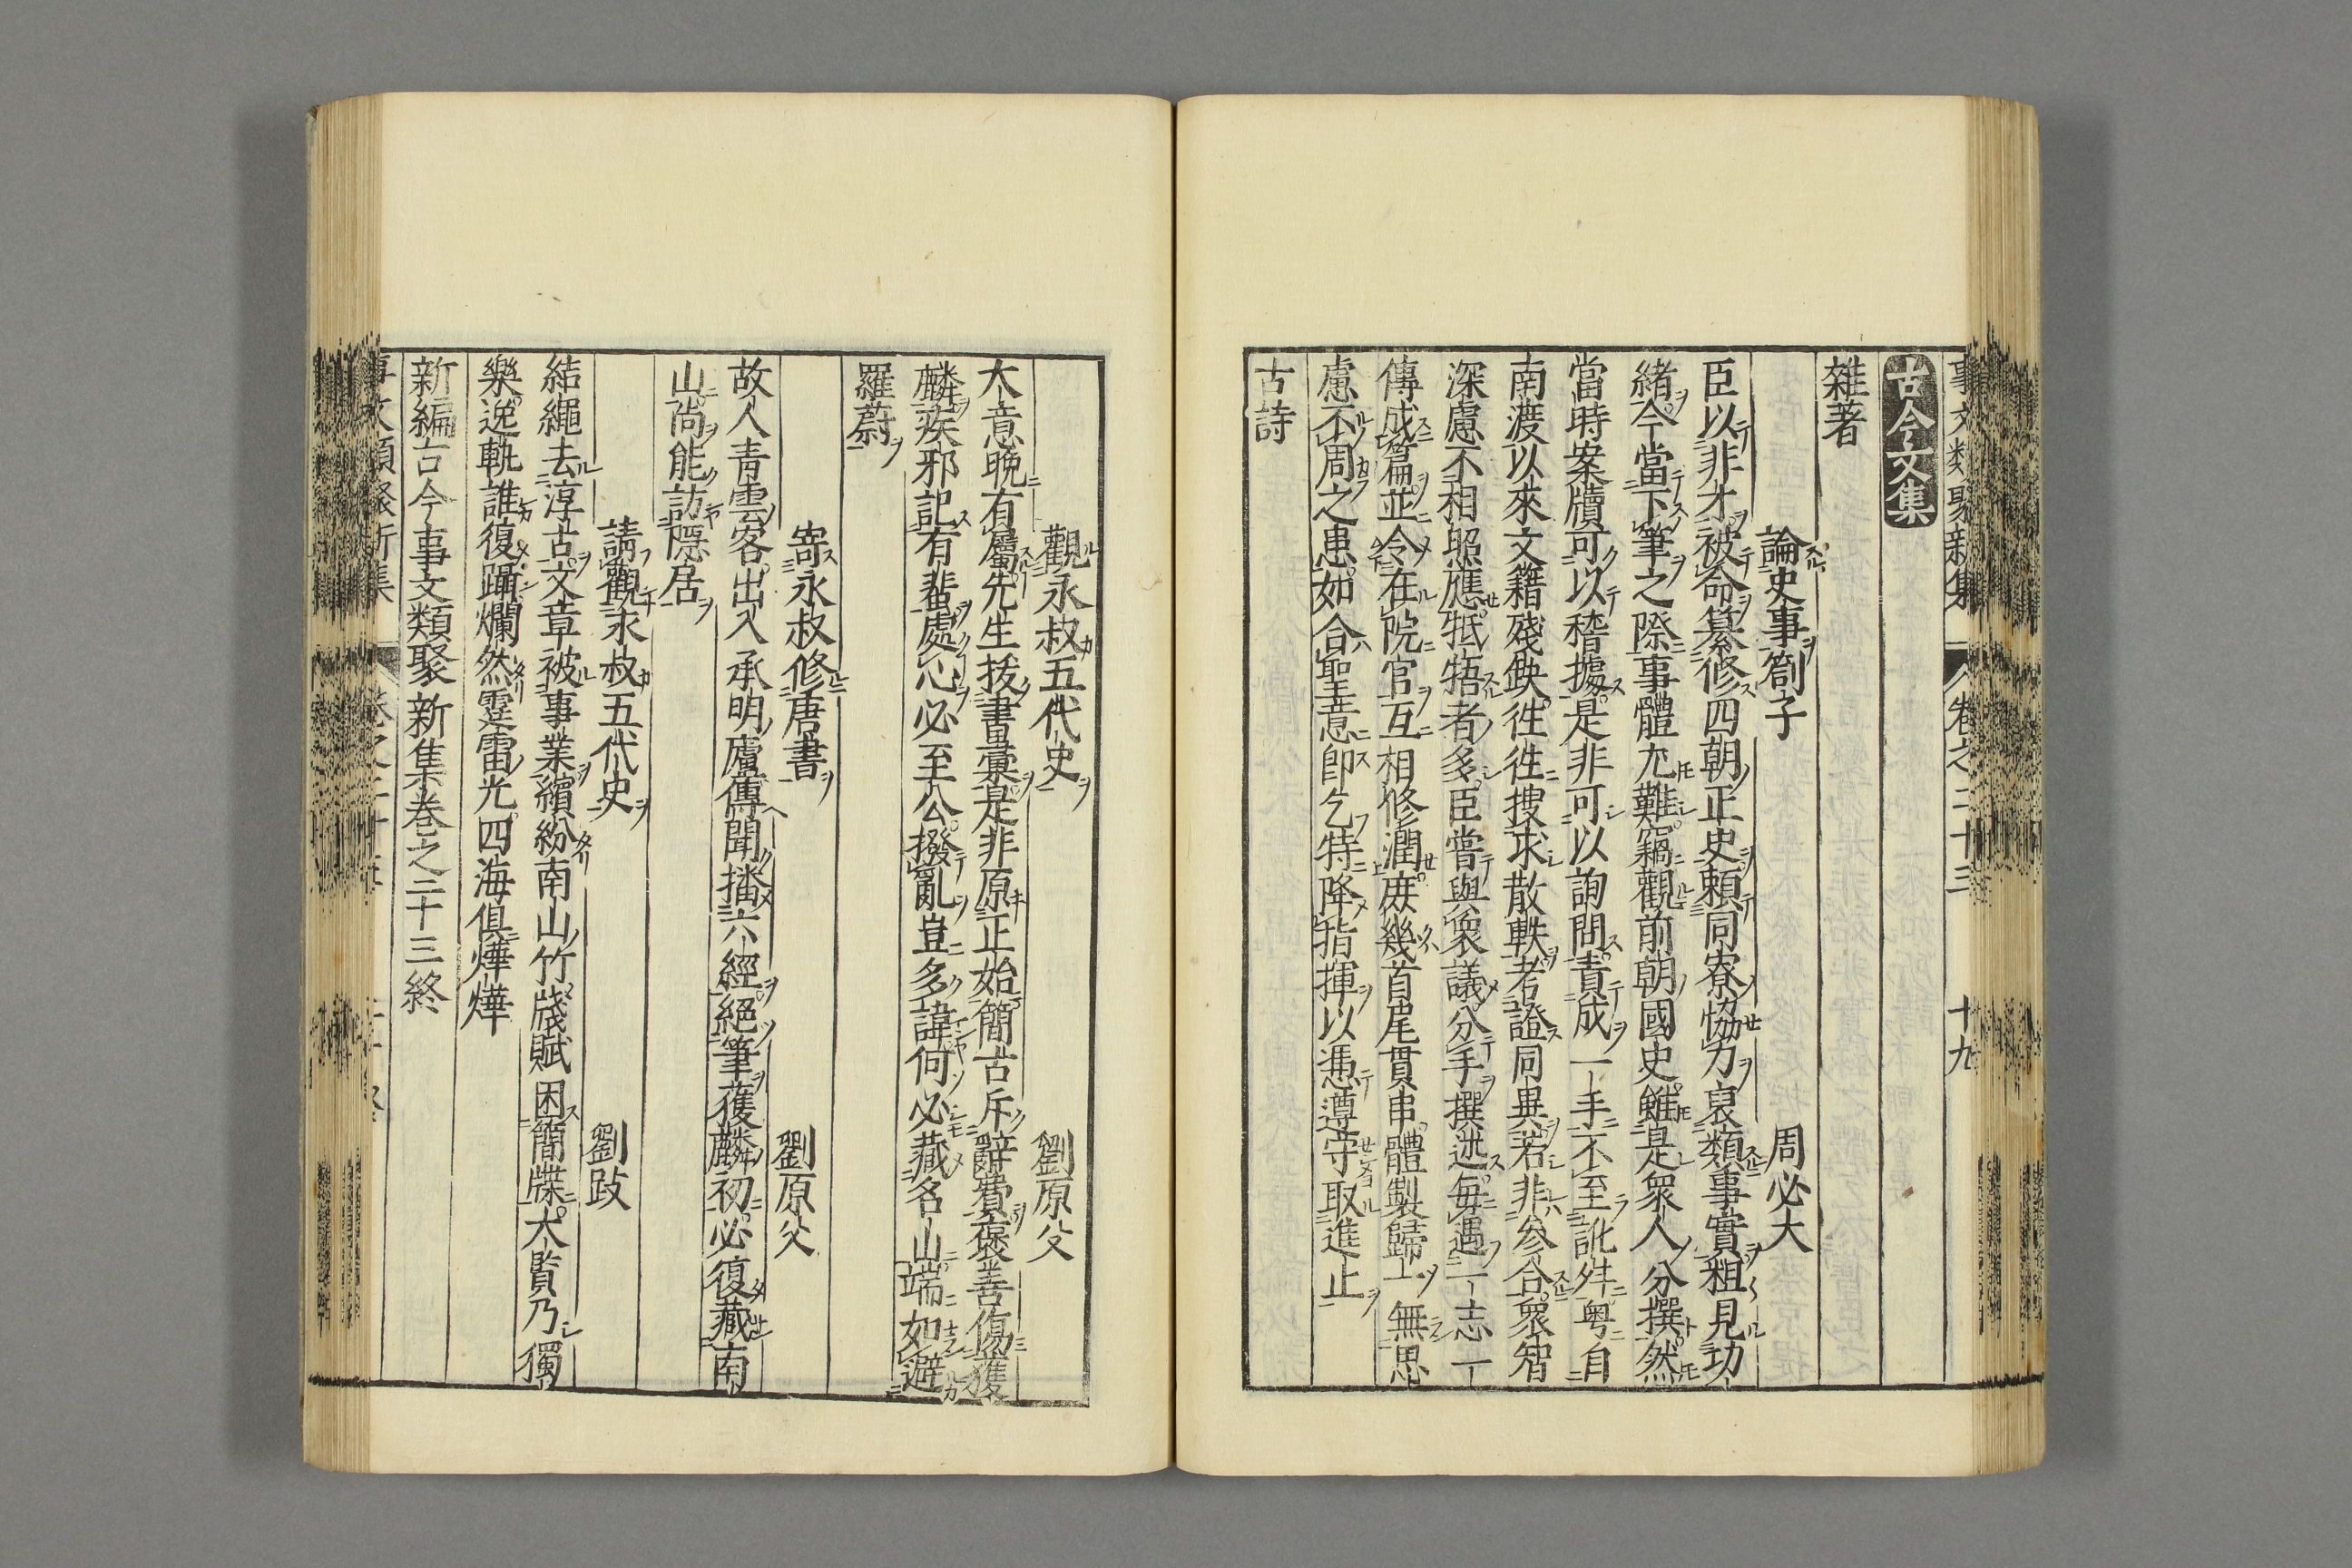 事文類聚新集 卷之二十三 十九
古今文集
雜著
論史事劄子 周必大
臣以非才被命纂修四朝正史賴同寮協力裒類事實粗見功
緒今當下筆之際事體尤難竊觀前朝國史雖是衆人分撰然
當時案牘可以稽據是非可以詢問責成一手不至訛舛粤自
南渡以來文籍殘缺徃徃搜求散軼考證同異若非參合衆智
深慮不相照應牴牾者多臣嘗與衆議分手撰述每遇一志一
傳成篇並令在院官互相修潤庻幾首尾貫串體製歸一無思
慮不周之患如合聖意即乞特降指揮以憑遵守取進止
古詩
觀永叔五代史 劉原父
大意晚有屬先生拔晝稾是非原正始簡古斥辭費褒善傷獲
麟疾邪記有蜚處心必至公撥亂豈多諱何必藏名山端如避
羅蔚
寄永叔修唐書 劉原父
故人青雲客出入承明廬傳聞播六經絕筆獲麟初必復藏南
山尚能訪隱居
請觀永叔五代史 劉跂
結繩去淳古文章被事業繽紛南山竹牋賦困簡牒大賢乃獨
樂逸軌誰復躡爛然霆雷光四海俱燁燁
新編古今事文類聚新集卷之二十三終